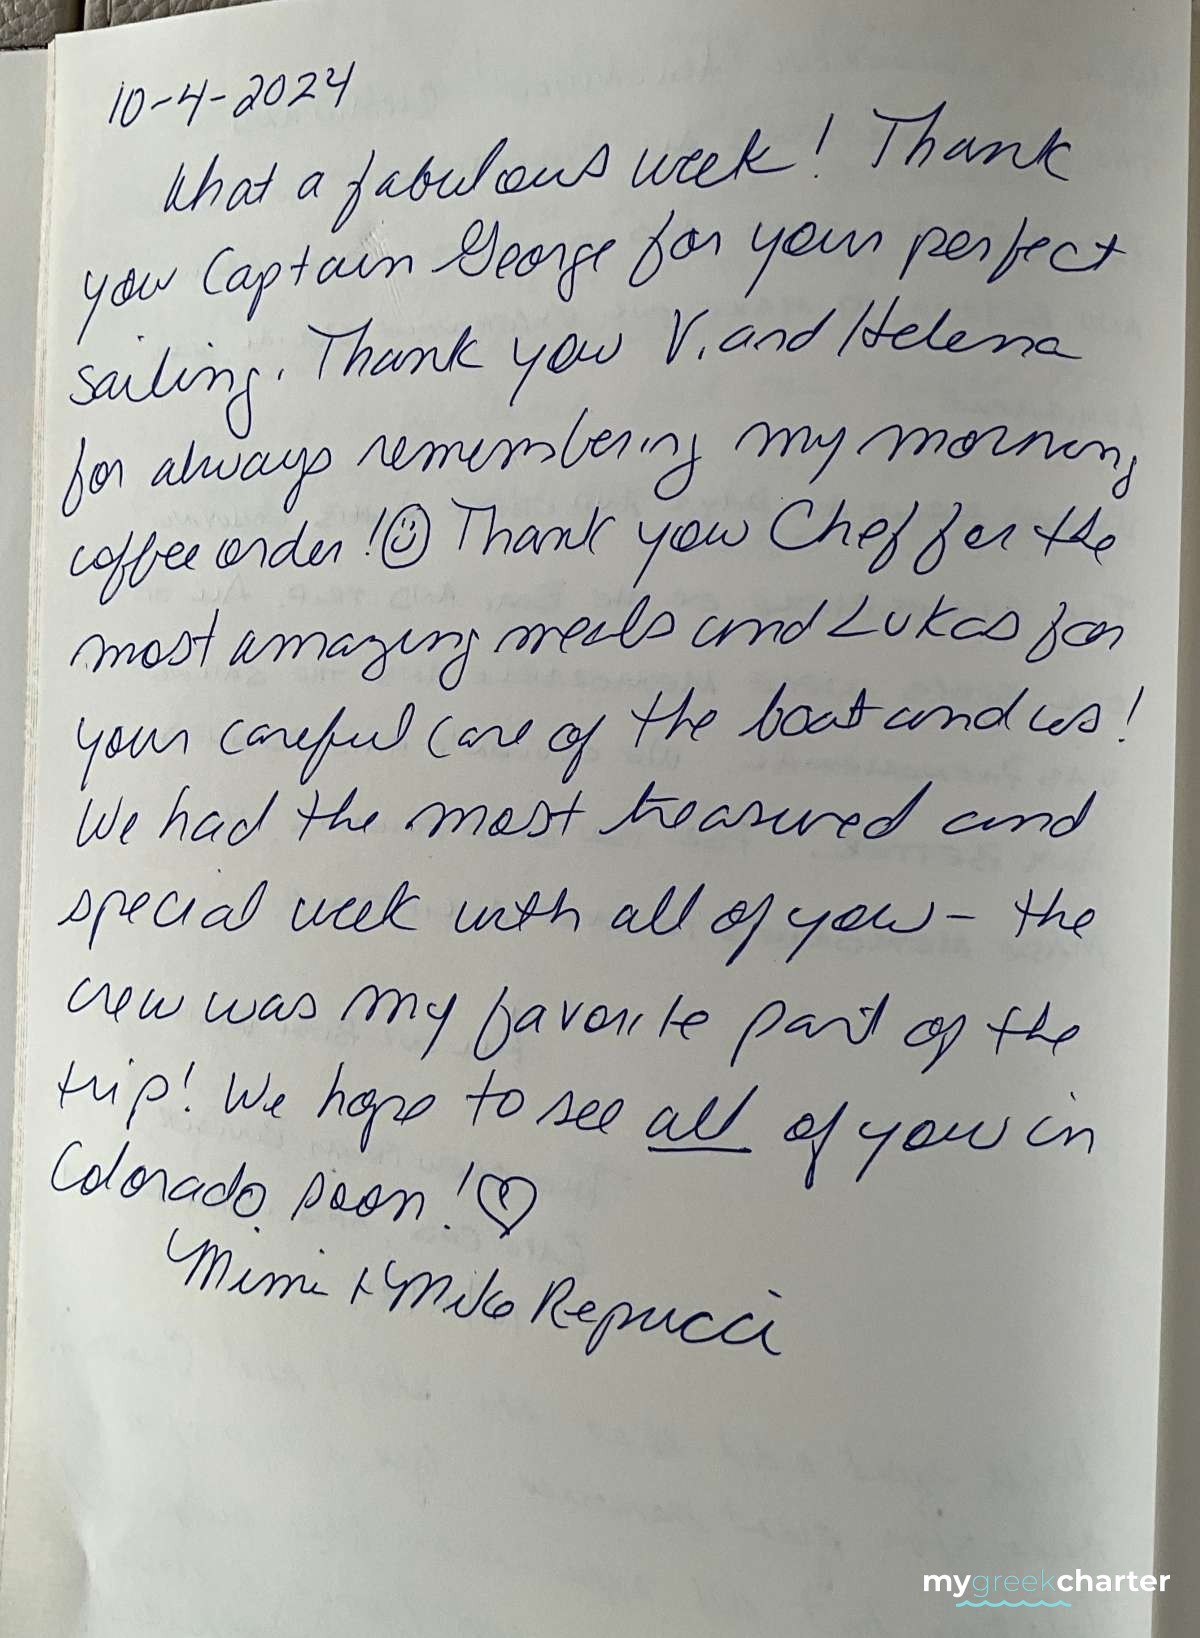 10-4-2024
What a fabulous week! Thank
you Captain George for your perfect
sailing. Thank you V. and Helena
for always remembering my morning
coffee order! ☺ Thank you Chef for the
most amazing meals and Lukas for
your careful care of the boat and us!
We had the most treasured and
special week with all of you – the
crew was my favorite part of the
trip! We hope to see all of you in
Colorado soon! ♡
Mimi + Mike Repucci
mygreekcharter